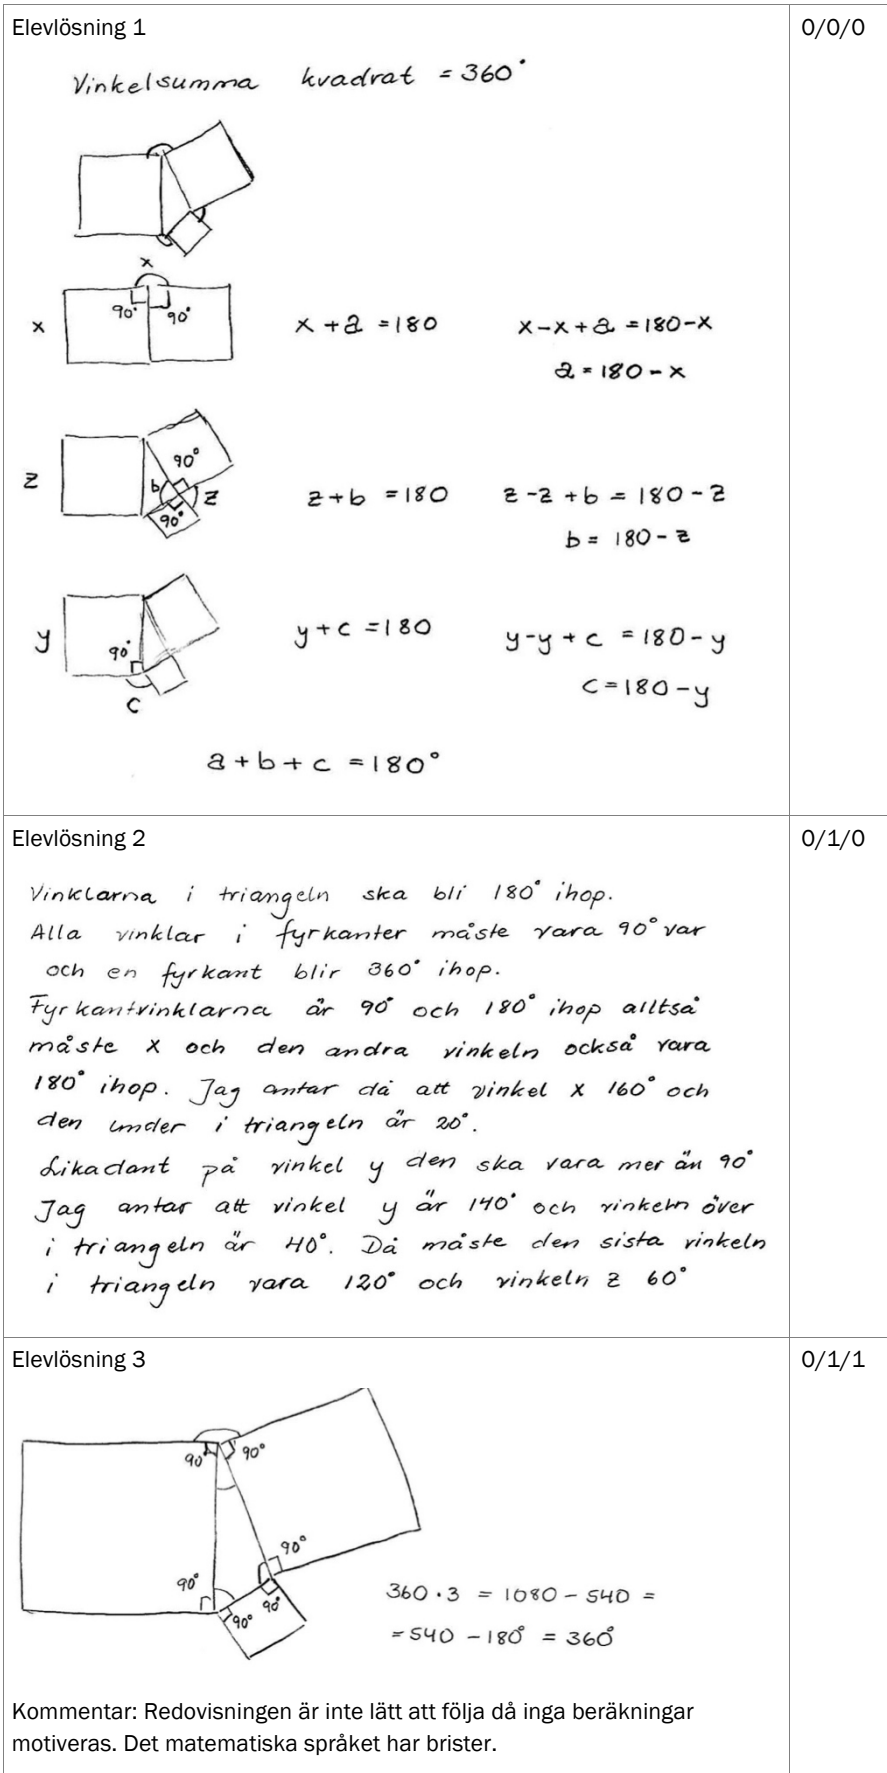 Elevlösning 1
0/0/0
Vinkelsumma kvadrat = 360°
x
90° 90°
x
x + a = 180
x-x+a = 180-x
a = 180-x
90°
z
b
z
90°
z+b = 180
z-z+b = 180-z
b = 180-z
y
90°
c
y+c = 180
y-y+c = 180-y
c = 180-y
a+b+c = 180°
Elevlösning 2
0/1/0
Vinklarna i triangeln ska bli 180° ihop.
Alla vinklar i fyrkanter måste vara 90° var
och en fyrkant blir 360° ihop.
Fyrkantvinklarna är 90° och 180° ihop alltså
måste x och den andra vinkeln också vara
180° ihop. Jag antar då att vinkel x 160° och
den under i triangeln är 20°.
Likadant på vinkel y den ska vara mer än 90°
Jag antar att vinkel y är 140° och vinkeln över
i triangeln är 40°. Då måste den sista vinkeln
i triangeln vara 120° och vinkeln z 60°
Elevlösning 3
0/1/1
90° 90°
90°
90°
90° 90°
360·3 = 1080 - 540 =
= 540 - 180° = 360°
Kommentar: Redovisningen är inte lätt att följa då inga beräkningar
motiveras. Det matematiska språket har brister.